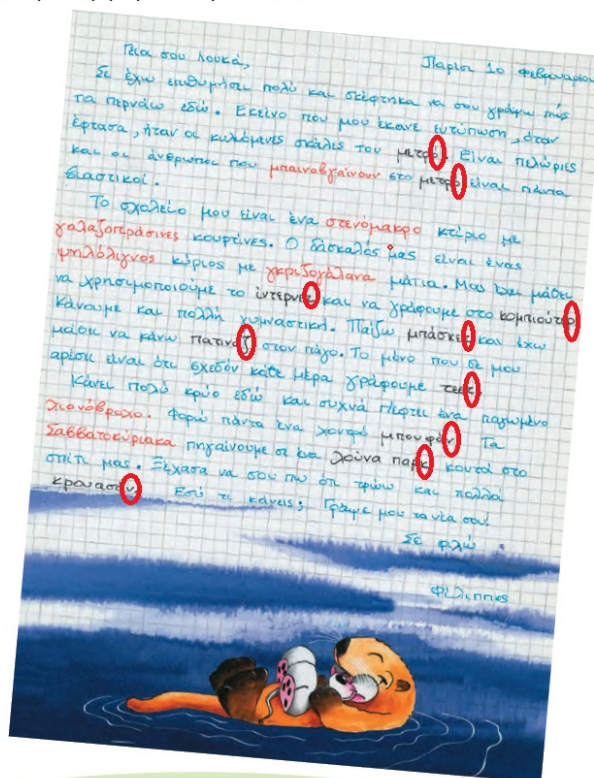 Γεια σου Λουκά, Παρίσι 10 Φεβρουαρίου
Σε έχω επιθυμήσει πολύ και σκέφτηκα να σου γράψω πώς
τα περνάω εδώ. Εκείνο που μου έκανε εντύπωση, όταν
έφτασα, ήταν οι κυλιόμενες σκάλες του μετρό. Είναι πελώριες
και οι άνθρωποι που μπαινοβγαίνουν στο μετρό είναι πάντα
βιαστικοί.
Το σχολείο μου είναι ένα στενόμακρο κτίριο με
γαλαζοπράσινες κουρτίνες. Ο δάσκαλός μας είναι ένας
ψηλόλιγνος κύριος με γκριζογάλανα μάτια. Μας έχει μάθει
να χρησιμοποιούμε το ίντερνετ και να γράφουμε στο κομπιούτερ
Κάνουμε και πολλή γυμναστική. Παίζω μπάσκετ και έχω
μάθει να κάνω πατινάζ στον πάγο. Το μόνο που δε μου
αρέσει είναι ότι σχεδόν κάθε μέρα γράφουμε τεστ
Κάνει πολύ κρύο εδώ και συχνά πέφτει ένα παγωμένο
χιονόβροχο. Φορώ πάντα ένα χοντρό μπουφάν. Τα
Σαββατοκύριακα πηγαίνουμε σε ένα λούνα παρκ κοντά στο
σπίτι μας. Ξέχασα να σου πω ότι τρώω και πολλά
κρουασάν. Εσύ τι κάνεις; Γράψε μου τα νέα σου.
Σε φιλώ
Φίλιππος